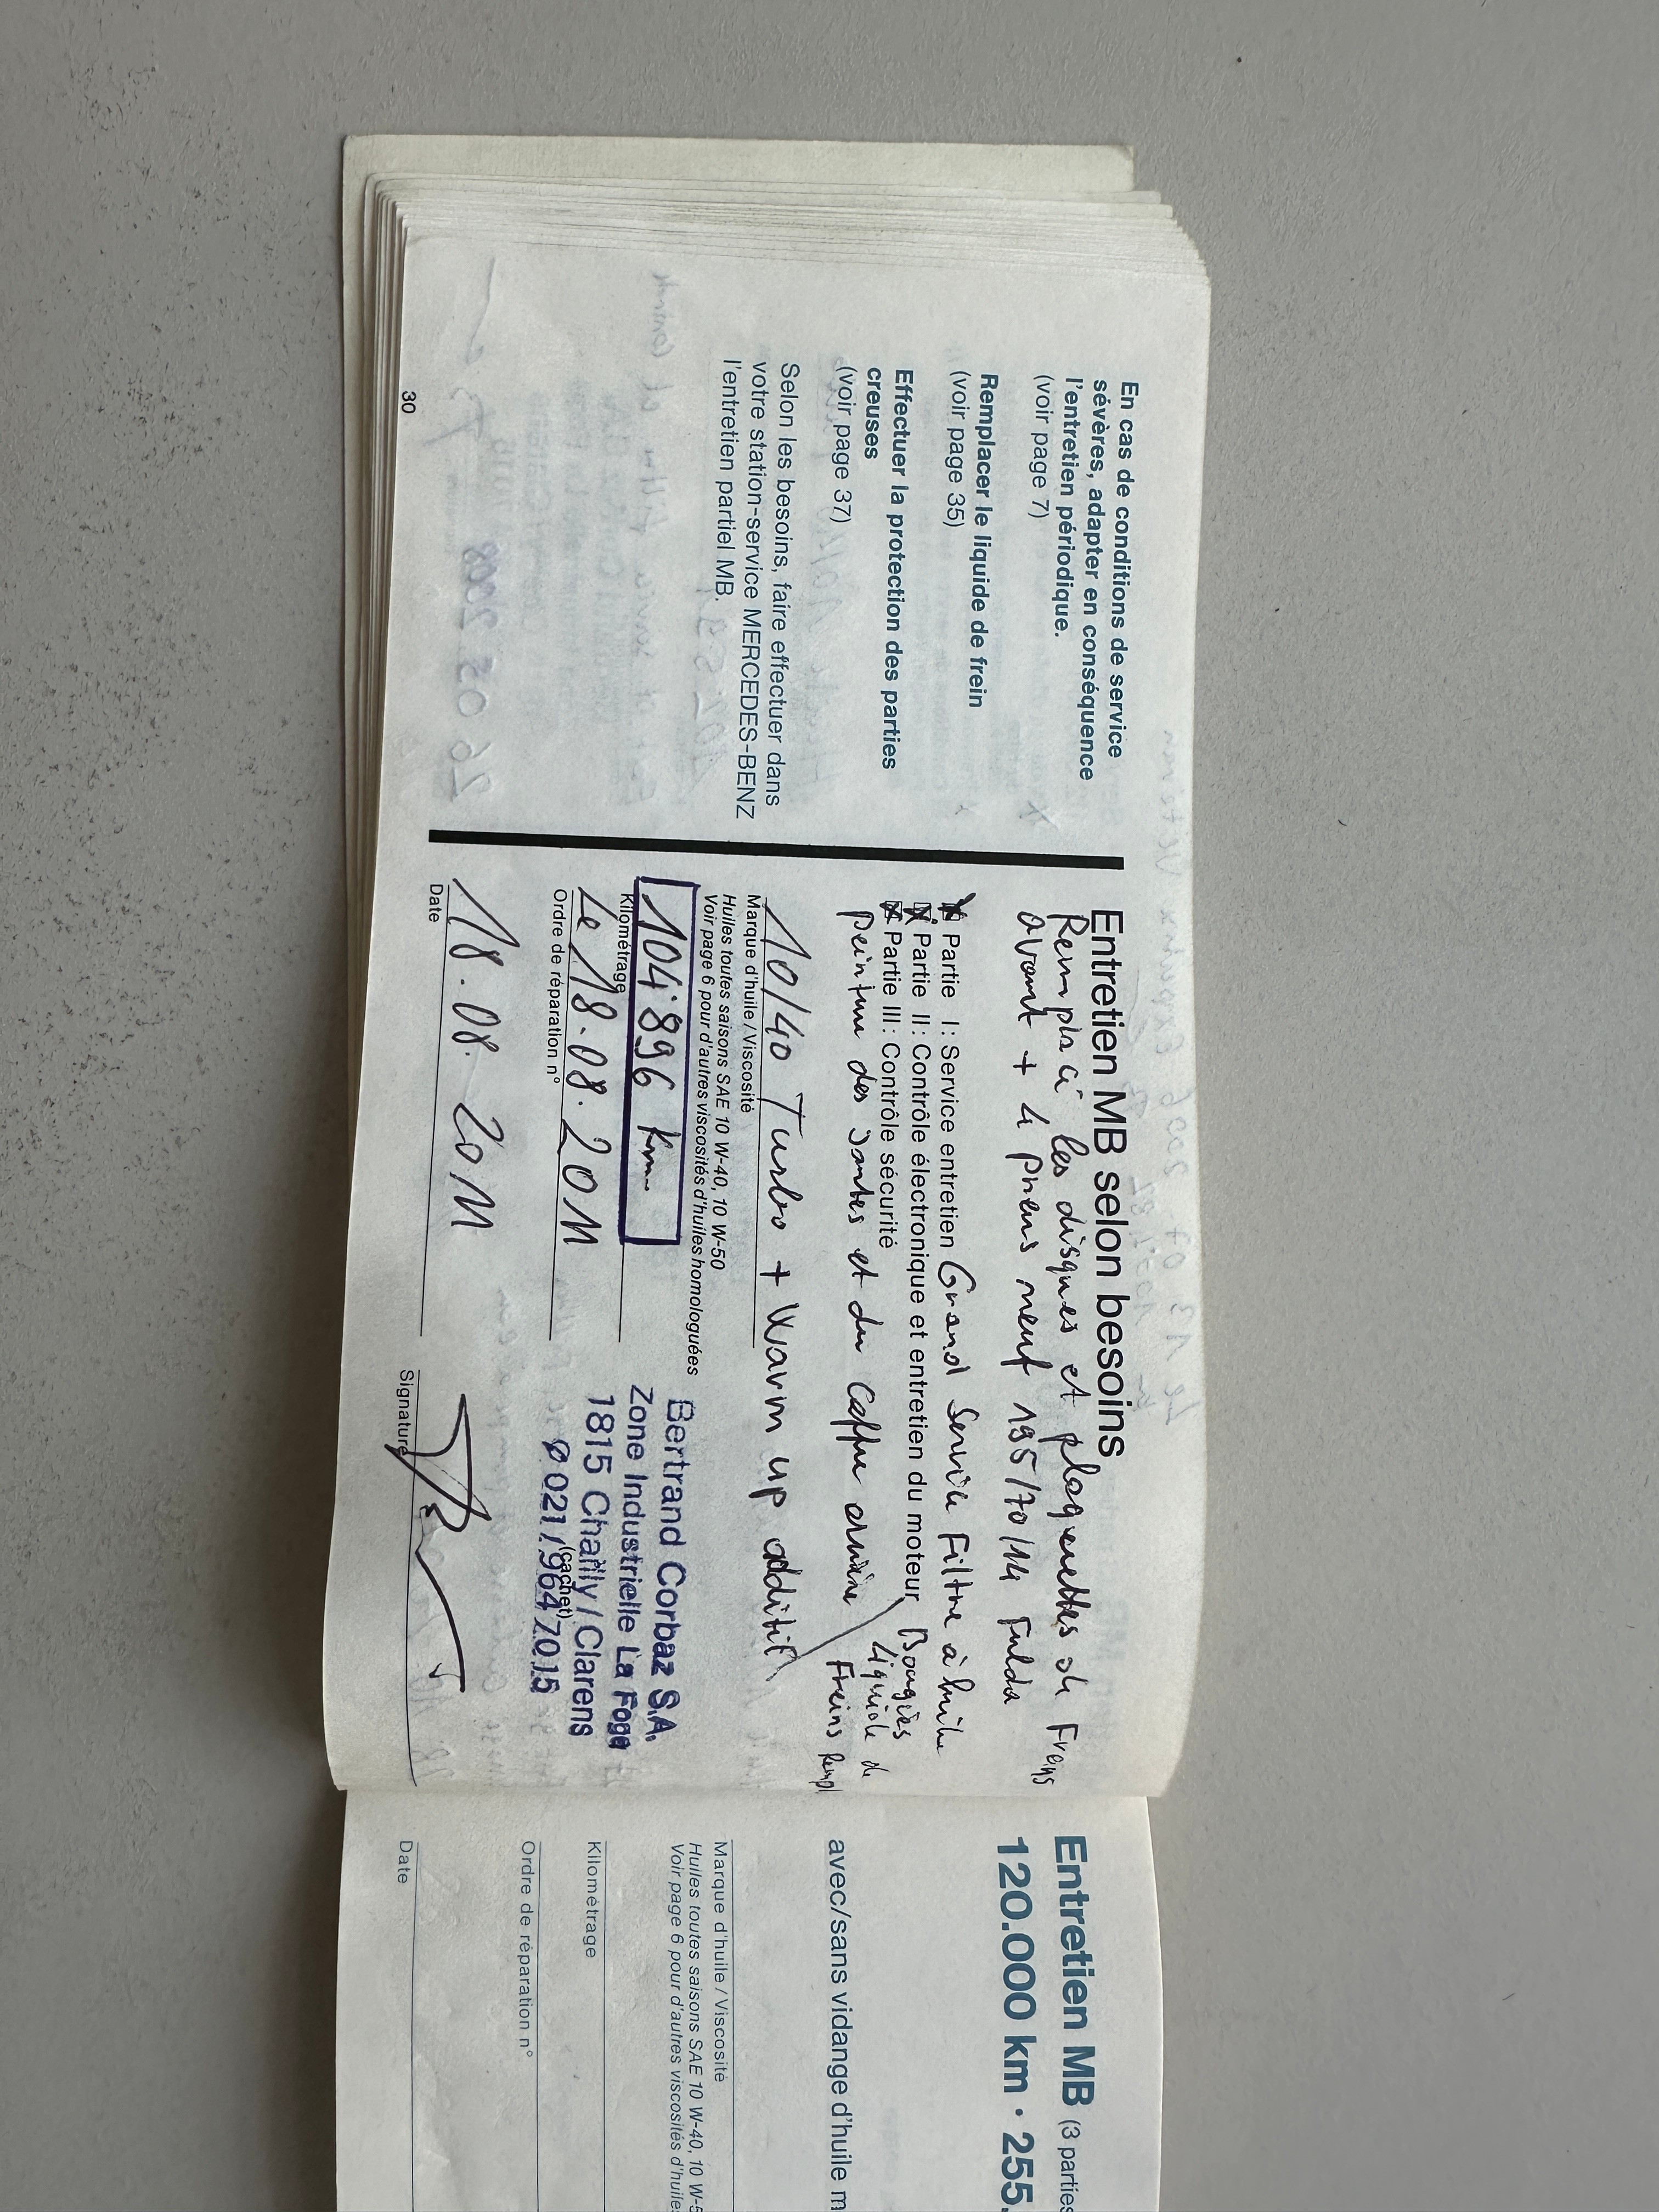 En cas de conditions de service
sévères, adapter en conséquence
l'entretien périodique.
(voir page 7)
Remplacer le liquide de frein
(voir page 35)
Effectuer la protection des parties
creuses
(voir page 37)
Selon les besoins, faire effectuer dans
votre station-service MERCEDES-BENZ
l'entretien partiel MB.
30
Entretien MB selon besoins
Remplacé les disques et plaquettes de Freins
avant + 4 pneus neuf 195/70/14 Fulda
Partie I: Service entretien Grand Service Filtre à huile
Partie II: Contrôle électronique et entretien du moteur Bougies
Partie III: Contrôle sécurité Liquide de
Peinture des Jantes et du Coffre arrière Freins Rempl
10/40 Turbo + Warm up additif
Marque d'huile / Viscosité
Huiles toutes saisons SAE 10 W-40, 10 W-50
Voir page 6 pour d'autres viscosités d'huiles homologuées
104'896 km
Kilométrage
Le 18.08.2011
Ordre de réparation n°
18.08.2011
Date
Bertrand Corbaz S.A.
Zone Industrielle La Foge
1815 Chailly/Clarens
(cachet)
021/964 70 15
Signature
Entretien MB (3 parties
120.000 km · 255.
avec/sans vidange d'huile m
Marque d'huile / Viscosité
Huiles toutes saisons SAE 10 W-40, 10 W-5
Voir page 6 pour d'autres viscosités d'huiles
Kilométrage
Ordre de réparation n°
Date